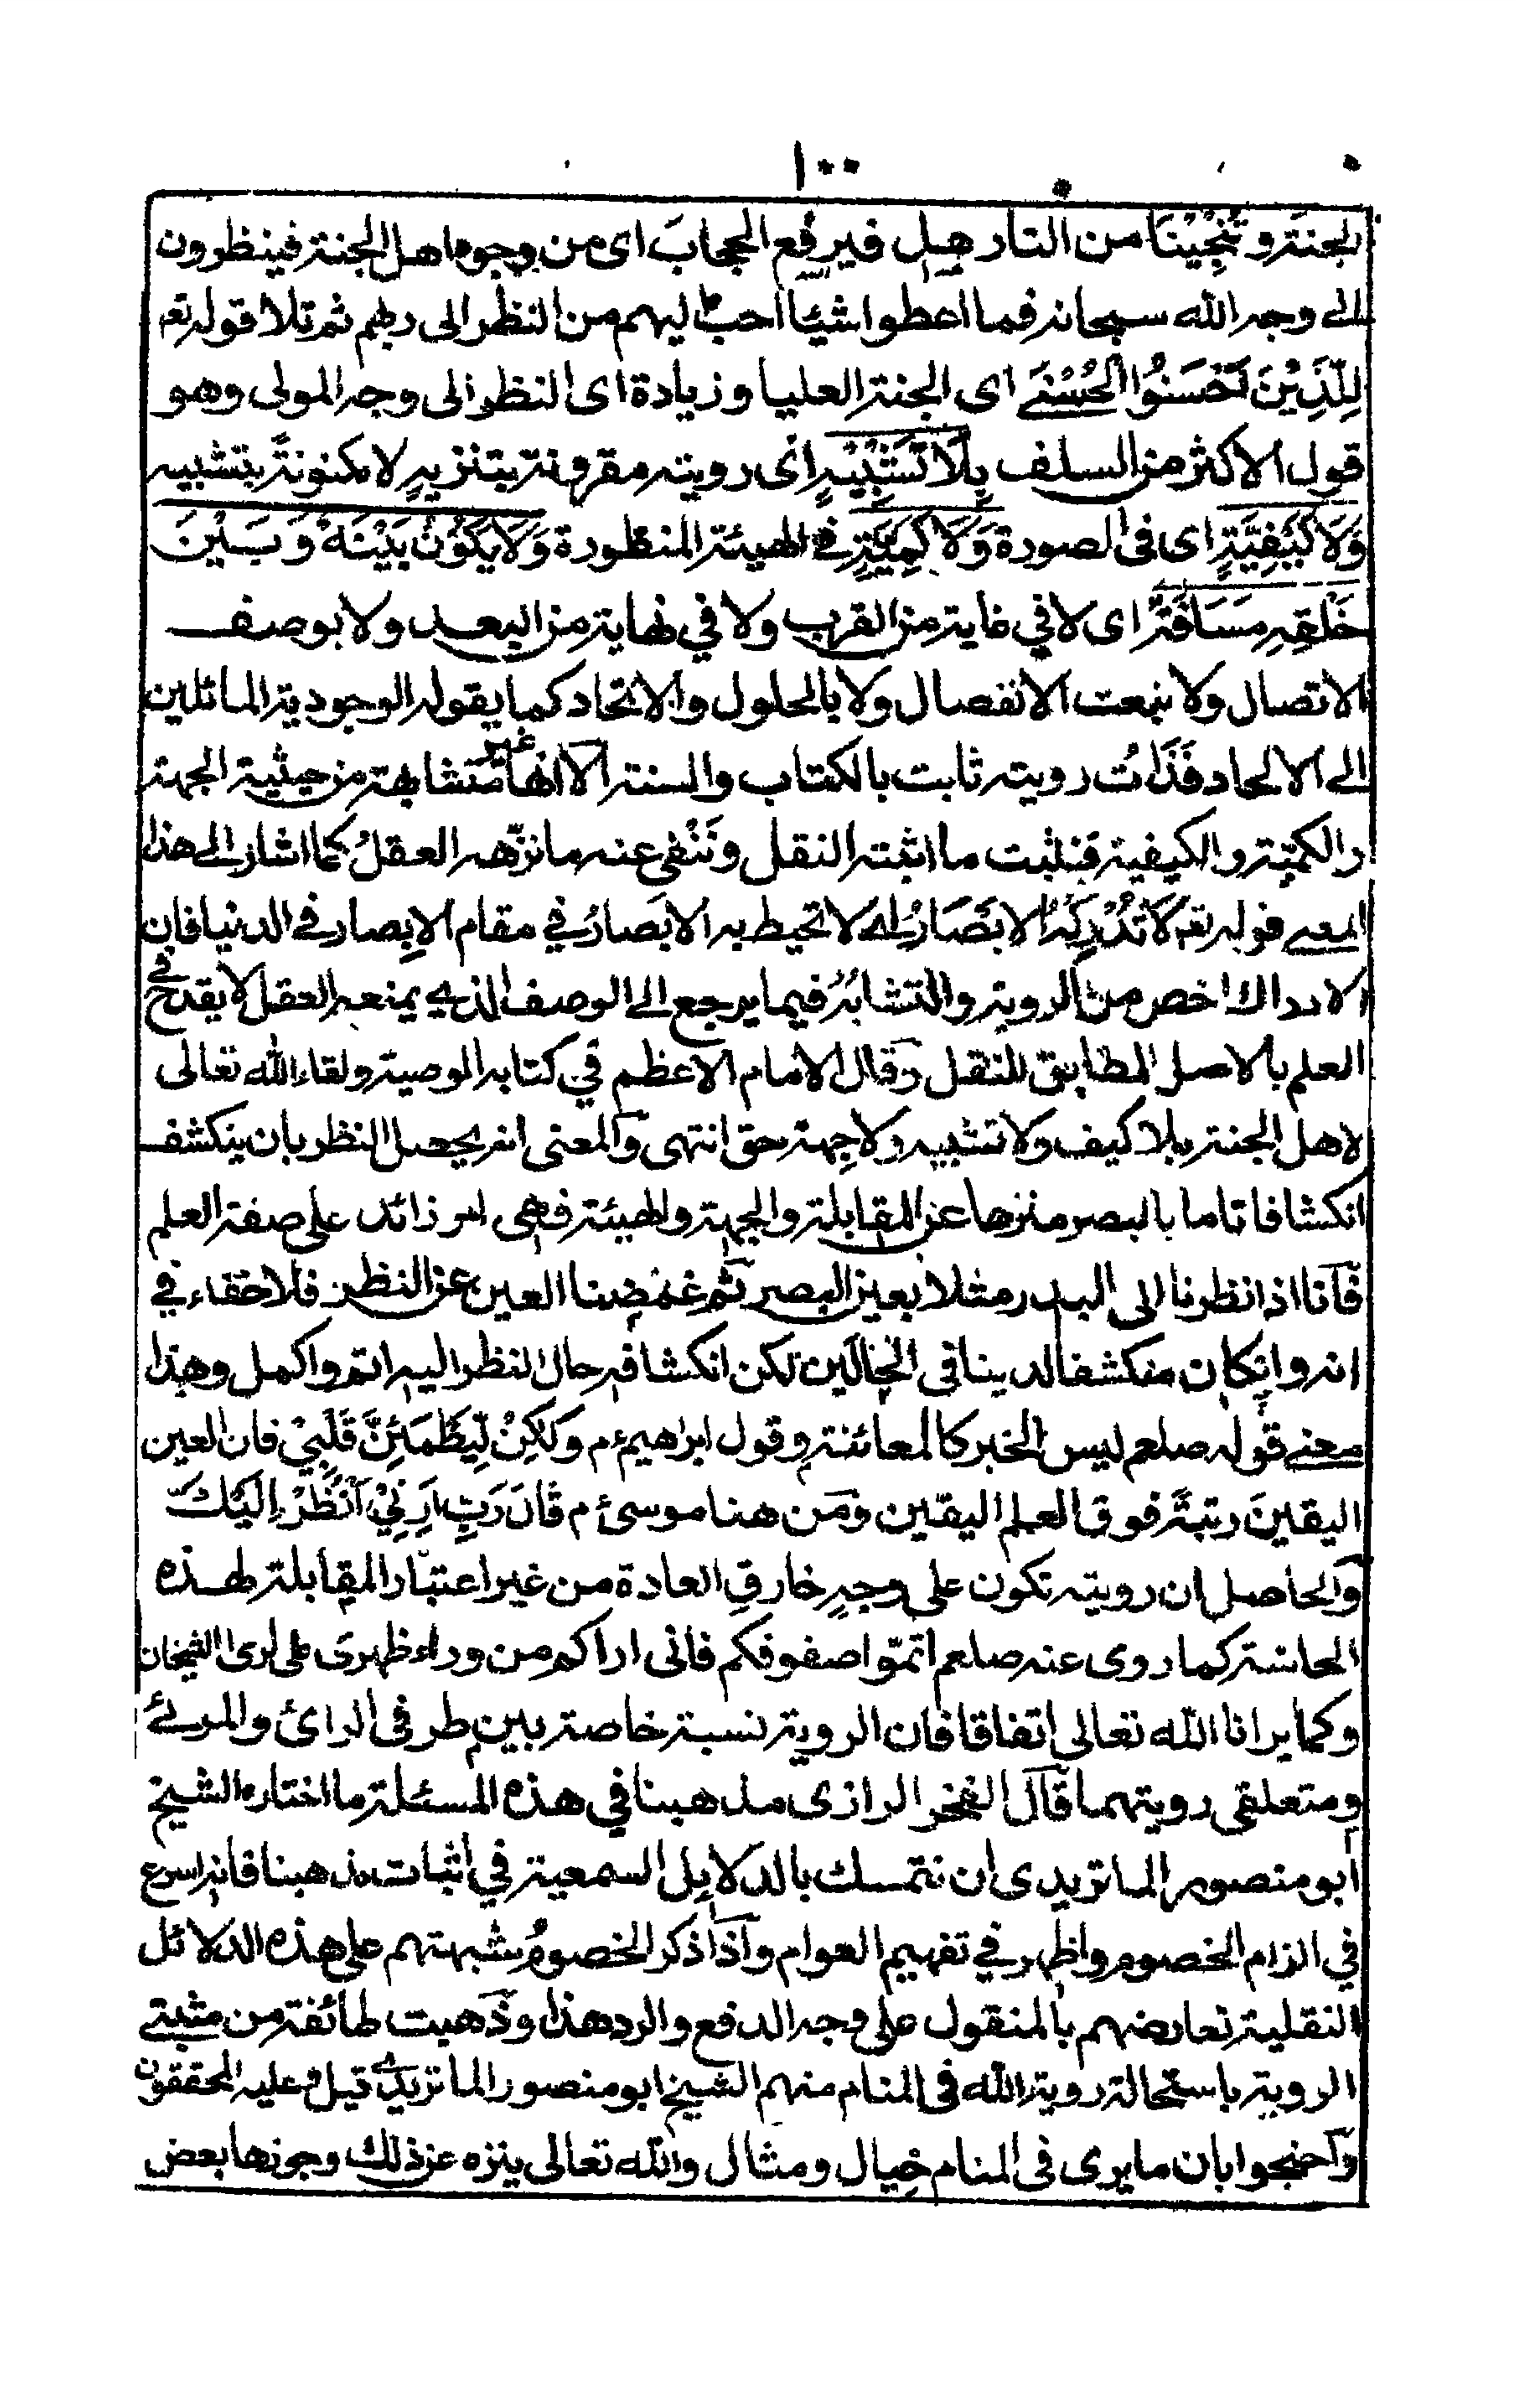 ١٠٠
الجنة وتُنْجِيْنَا من النار قيل فيرفع الحجابَ اى من وجوه اهل الجنة فينظرون
الى وجه الله سبحانه فما اعطوا شيئا احبّ اليهم من النظر الى ربهم ثم تلا قوله تع
لِلَّذِيْنَ اَحْسَنُوا الْحُسْنٰى اى الجنة العليا وزيادة اى النظر الى وجه المولى وهو
قول الاكثر من السلف بِلَا تَشْبِيْهٍ اى رويته مقرونة بتنزيهٍ لا مكنونة بتشبيه
وَلَا كَيْفِيَّةٍ اى فى الصورة وَلَا كَمِيَّةٍ فى الهيئة المنظورة وَلَا يَكُوْنُ بَيْنَهٗ وَبَيْنَ
خَلْقِهٖ مَسَافَةٌ اى لا في غاية من القرب ولا في نهاية من البعد ولا بوصف
الاتصال ولا بنعت الانفصال ولا بالحلول والاتحاد كما يقوله الوجودية المائلين
الى الالحاد فَذَات رويته ثابت بالكتاب والسنة الا انها غير متشابهة من حيثية الجهة
والكميّة والكيفية فنثبت ما اثبته النقل ونَنْفى عنه ما نزّهه العقلُ كما اشار الى هذا
المعنى قوله تع لَا تُدْرِكُهُ الْاَبْصَارُ اى لا تحيط به الابصارُ في مقام الابصار فى الدنيا فان
الادراك اخص من الروية والتشابُهُ فيما يرجع الى الوصف الذى يمنعه العقل لا يقدح فى
العلم بالاصل المطابق للنقل وقال الامام الاعظم في كتابه الوصية ولقاء الله تعالى
لاهل الجنة بلا كيف ولا تشبيه ولا جهة حق انتهى والمعنى انه يحصل النظر بان ينكشف
انكشافا تاما بالبصر منزها عن المقابلة والجهة والهيئة فهى امر زائد على صفة العلم
فانا اذا نظرنا الى البدر مثلا بعين البصر ثم غمضنا العين عن النظر فلا خفاء في
انه وان كان منكشفا لدينا فى الحالَين لكن انكشافه حال النظر اليه اتم واكمل وهذا
معنى قوله صلعم ليس الخبر كالمعائنة وقول ابراهيم ءم وَلٰكِنْ لِّيَطْمَئِنَّ قَلْبِيْ فان العين
اليقينَ رتبةً فوق العلم اليقين ومن هنا موسى ءم قَالَ رَبِّ اَرِنِيْ اَنْظُرْ اِلَيْكَ
والحاصل ان رويته تكون على وجهٍ خارق العادة من غير اعتبار المقابلة لهذه
الحاسّة كما روى عنه صلعم اتمّوا صفوفكم فانى اراكم من وراء ظهرى على الشيخان
وكما يرانا الله تعالى اتفاقا فان الروية نسبة خاصة بين طرفى الرائ والمرئ
ومتعلقى رويتهما قال الفخر الرازى مذهبنا في هذه المسئلة ما اختاره الشيخ
ابو منصور الماتريدى ان نتمسك بالدلايل السمعية في اثبات مذهبنا فانه اسرع
في الزام الخصوم واظهر في تفهيم العوام واذا ذكر الخصومُ شبهتهم على هذه الدلائل
النقلية نعارضهم بالمنقول على وجه الدفع والرد هذا وذهبت طائفة من مثبتى
الروية باستحالة روية الله فى المنام منهم الشيخ ابو منصور الماتريدى قيل وعليه المحققون
واحتجوا بان ما يرى فى المنام خيال ومثال والله تعالى ينزه عن ذلك وجوزها بعض